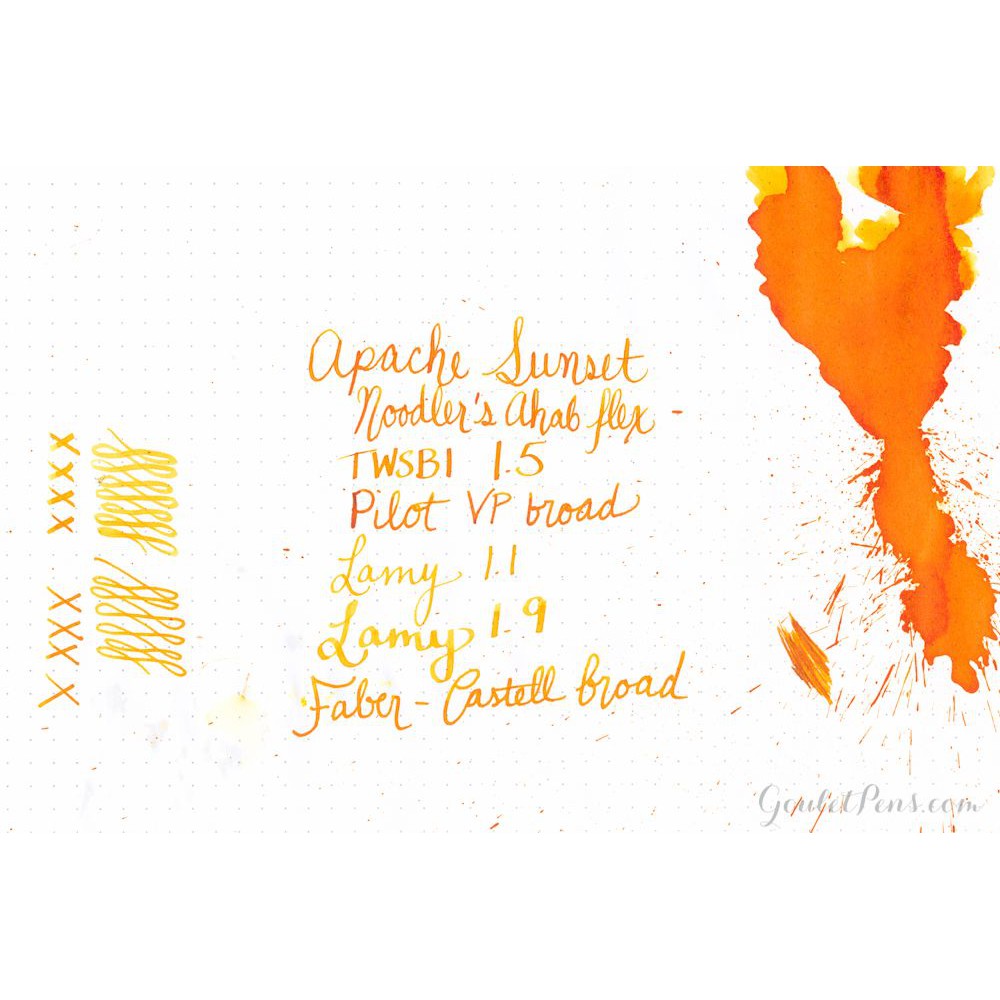 Apache Sunset
Noodler's Ahab flex -
TWSBI 1.5
Pilot VP broad
Lamy 1.1
Lamy 1.9
Faber-Castell broad
xxxx
XXXX
GouletPens.com